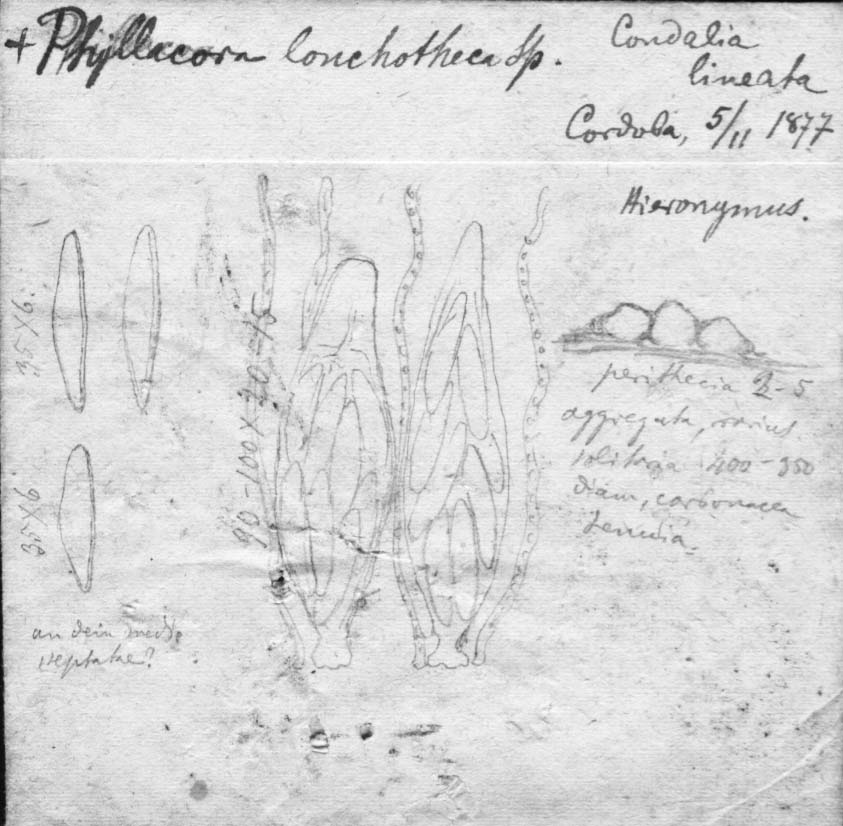 + Phyllacora lonchotheca Sp.
Condalia
lineata
Cordoba, 5/11 1877
Hieronymus.
35 X 6.
35 X 6
90-100 X 20-15
perithecia 2-5
aggregata, rarius
solitaria 400-350
diam, carbonacea
tenuia.
an dein medio
septatae?